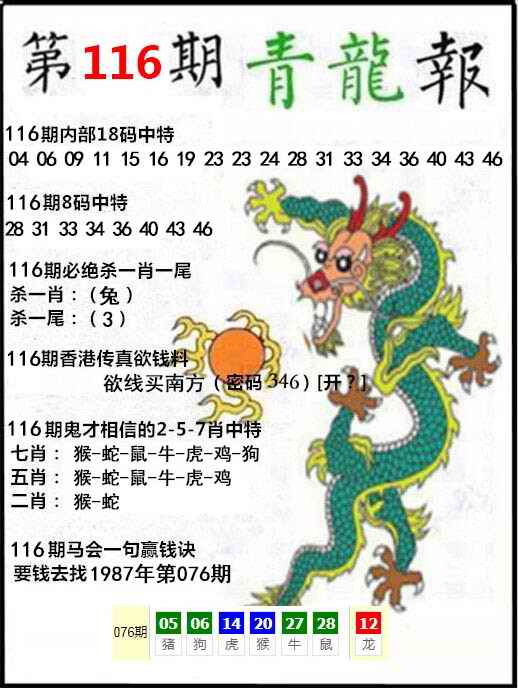 第116期青龍報
116期内部18码中特
04 06 09 11 15 16 19 23 23 24 28 31 33 34 36 40 43 46
116期8码中特
28 31 33 34 36 40 43 46
116期必绝杀一肖一尾
杀一肖：（兔）
杀一尾：（3）
116期香港传真欲钱料
欲线买南方（密码346）[开？]
116期鬼才相信的2-5-7肖中特
七肖： 猴-蛇-鼠-牛-虎-鸡-狗
五肖： 猴-蛇-鼠-牛-虎-鸡
二肖： 猴-蛇
116期马会一句赢钱诀
要钱去找1987年第076期
076期 05 06 14 20 27 28 12
猪 狗 虎 猴 牛 鼠 龙